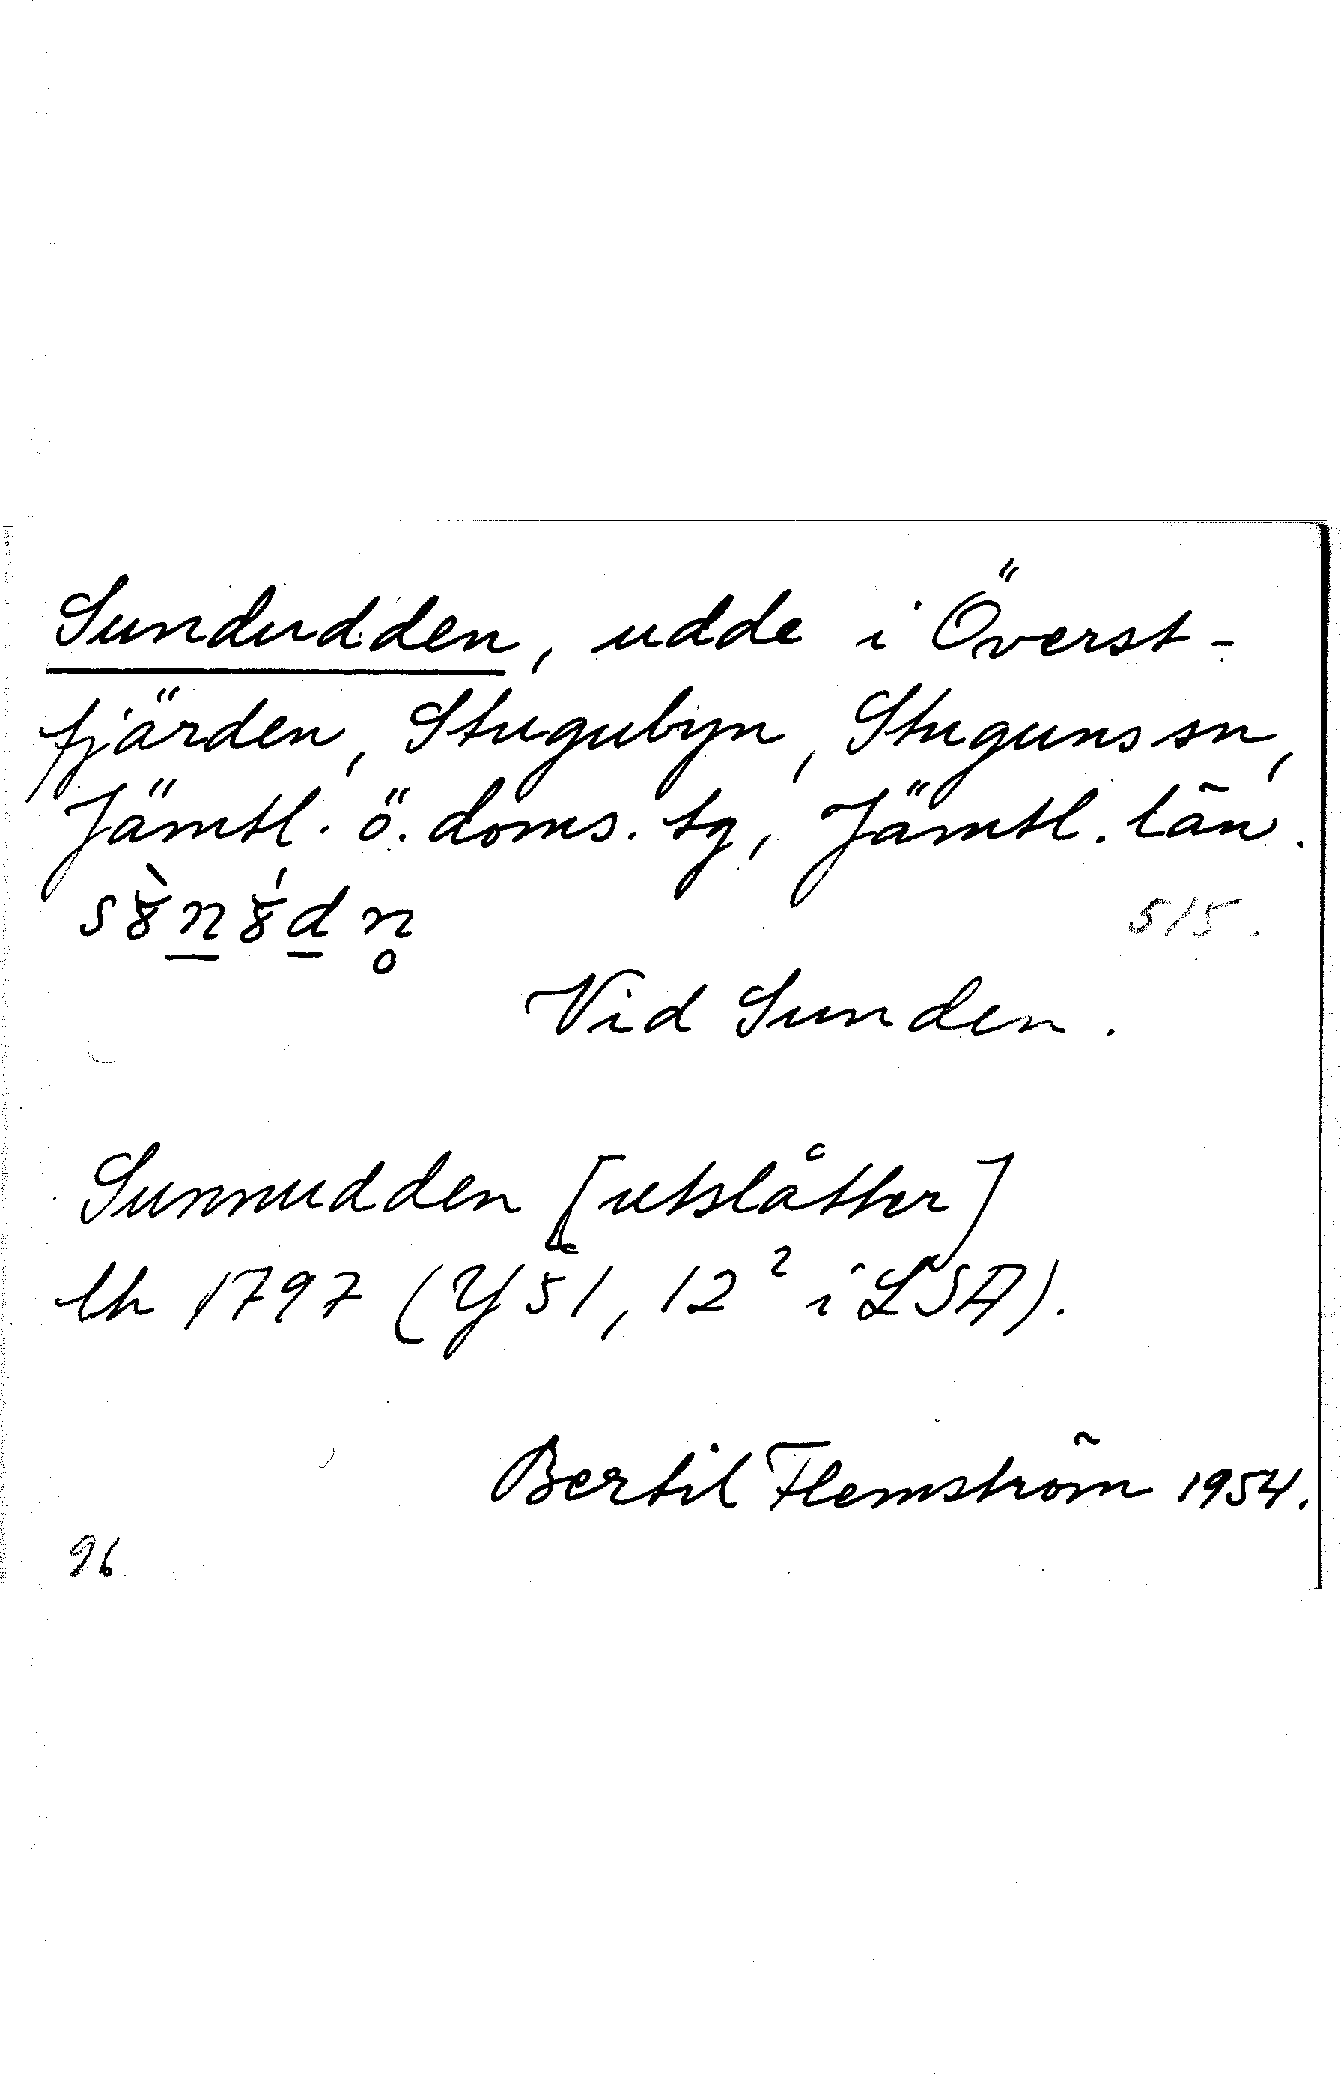 Sundudden, udde i Överst-
fjärden, Stugubyn, Stuguns sn,
Jämtl. ö. doms. tg, Jämtl. län.
515.
Vid Sunden.
Sunnudden [utslåtter]
lh 1797 (Y 51, 12² i LSA).
Bertil Flemström 1954.
96